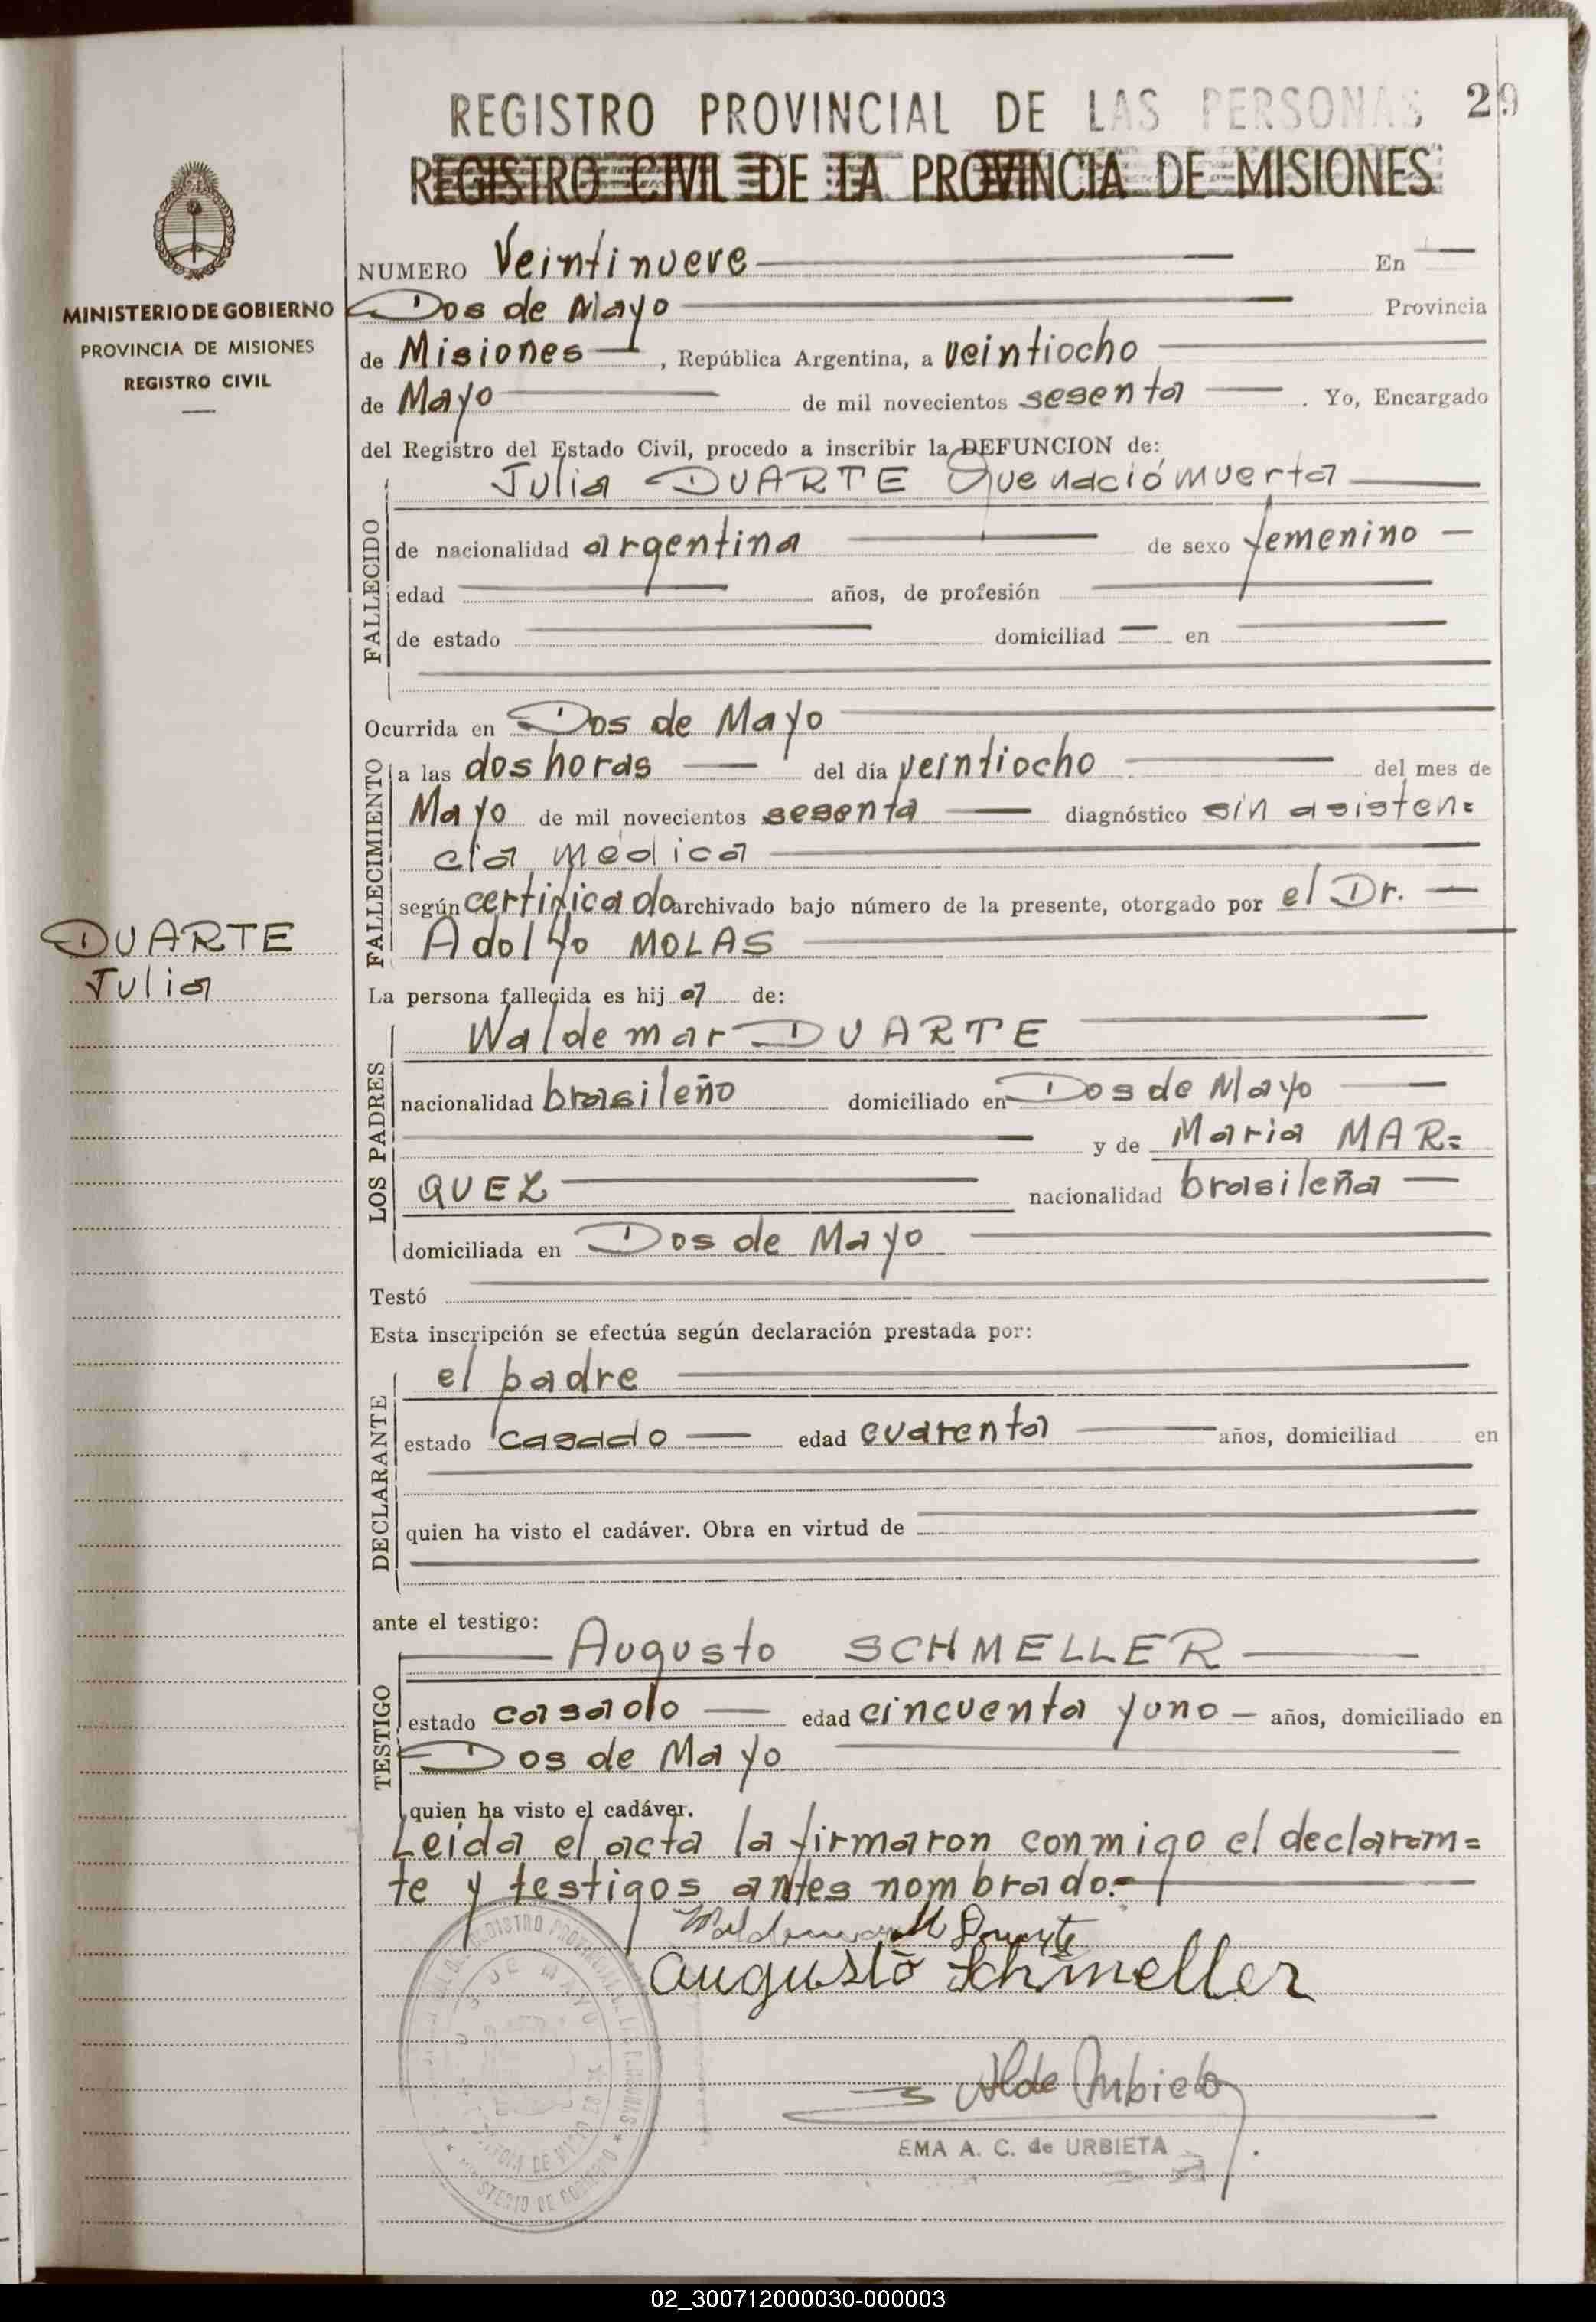 REGISTRO PROVINCIAL DE LAS PERSONAS 29
REGISTRO CIVIL DE LA PROVINCIA DE MISIONES
MINISTERIO DE GOBIERNO
PROVINCIA DE MISIONES
REGISTRO CIVIL
NUMERO Veintinueve En
Dos de Mayo Provincia
de Misiones, República Argentina, a veintiocho
de Mayo de mil novecientos sesenta. Yo, Encargado
del Registro del Estado Civil, procedo a inscribir la DEFUNCION de:
FALLECIDO
Julia DUARTE Que nació muerta
de nacionalidad argentina de sexo femenino
edad años, de profesión
de estado domiciliad en
Ocurrida en Dos de Mayo
FALLECIMIENTO
a las dos horas del día veintiocho del mes de
Mayo de mil novecientos sesenta diagnóstico sin asisten=
cia médica
según certificado archivado bajo número de la presente, otorgado por el Dr.
Adolfo MOLAS
DUARTE
Julia
La persona fallecida es hija de:
LOS PADRES
Waldemar DUARTE
nacionalidad brasileño domiciliado en Dos de Mayo
y de Maria MAR=
QUEZ nacionalidad brasileña
domiciliada en Dos de Mayo
Testó
Esta inscripción se efectúa según declaración prestada por:
DECLARANTE
el padre
estado casado edad cuarenta años, domiciliad en
quien ha visto el cadáver. Obra en virtud de
ante el testigo:
TESTIGO
Augusto SCHMELLER
estado casado edad cincuenta y uno años, domiciliado en
Dos de Mayo
quien ha visto el cadáver.
Leida el acta la firmaron conmigo el declaran=
te y testigos antes nombrado.
Duarte
Augusto Schmeller
EMA A. C. de URBIETA
02_300712000030-000003